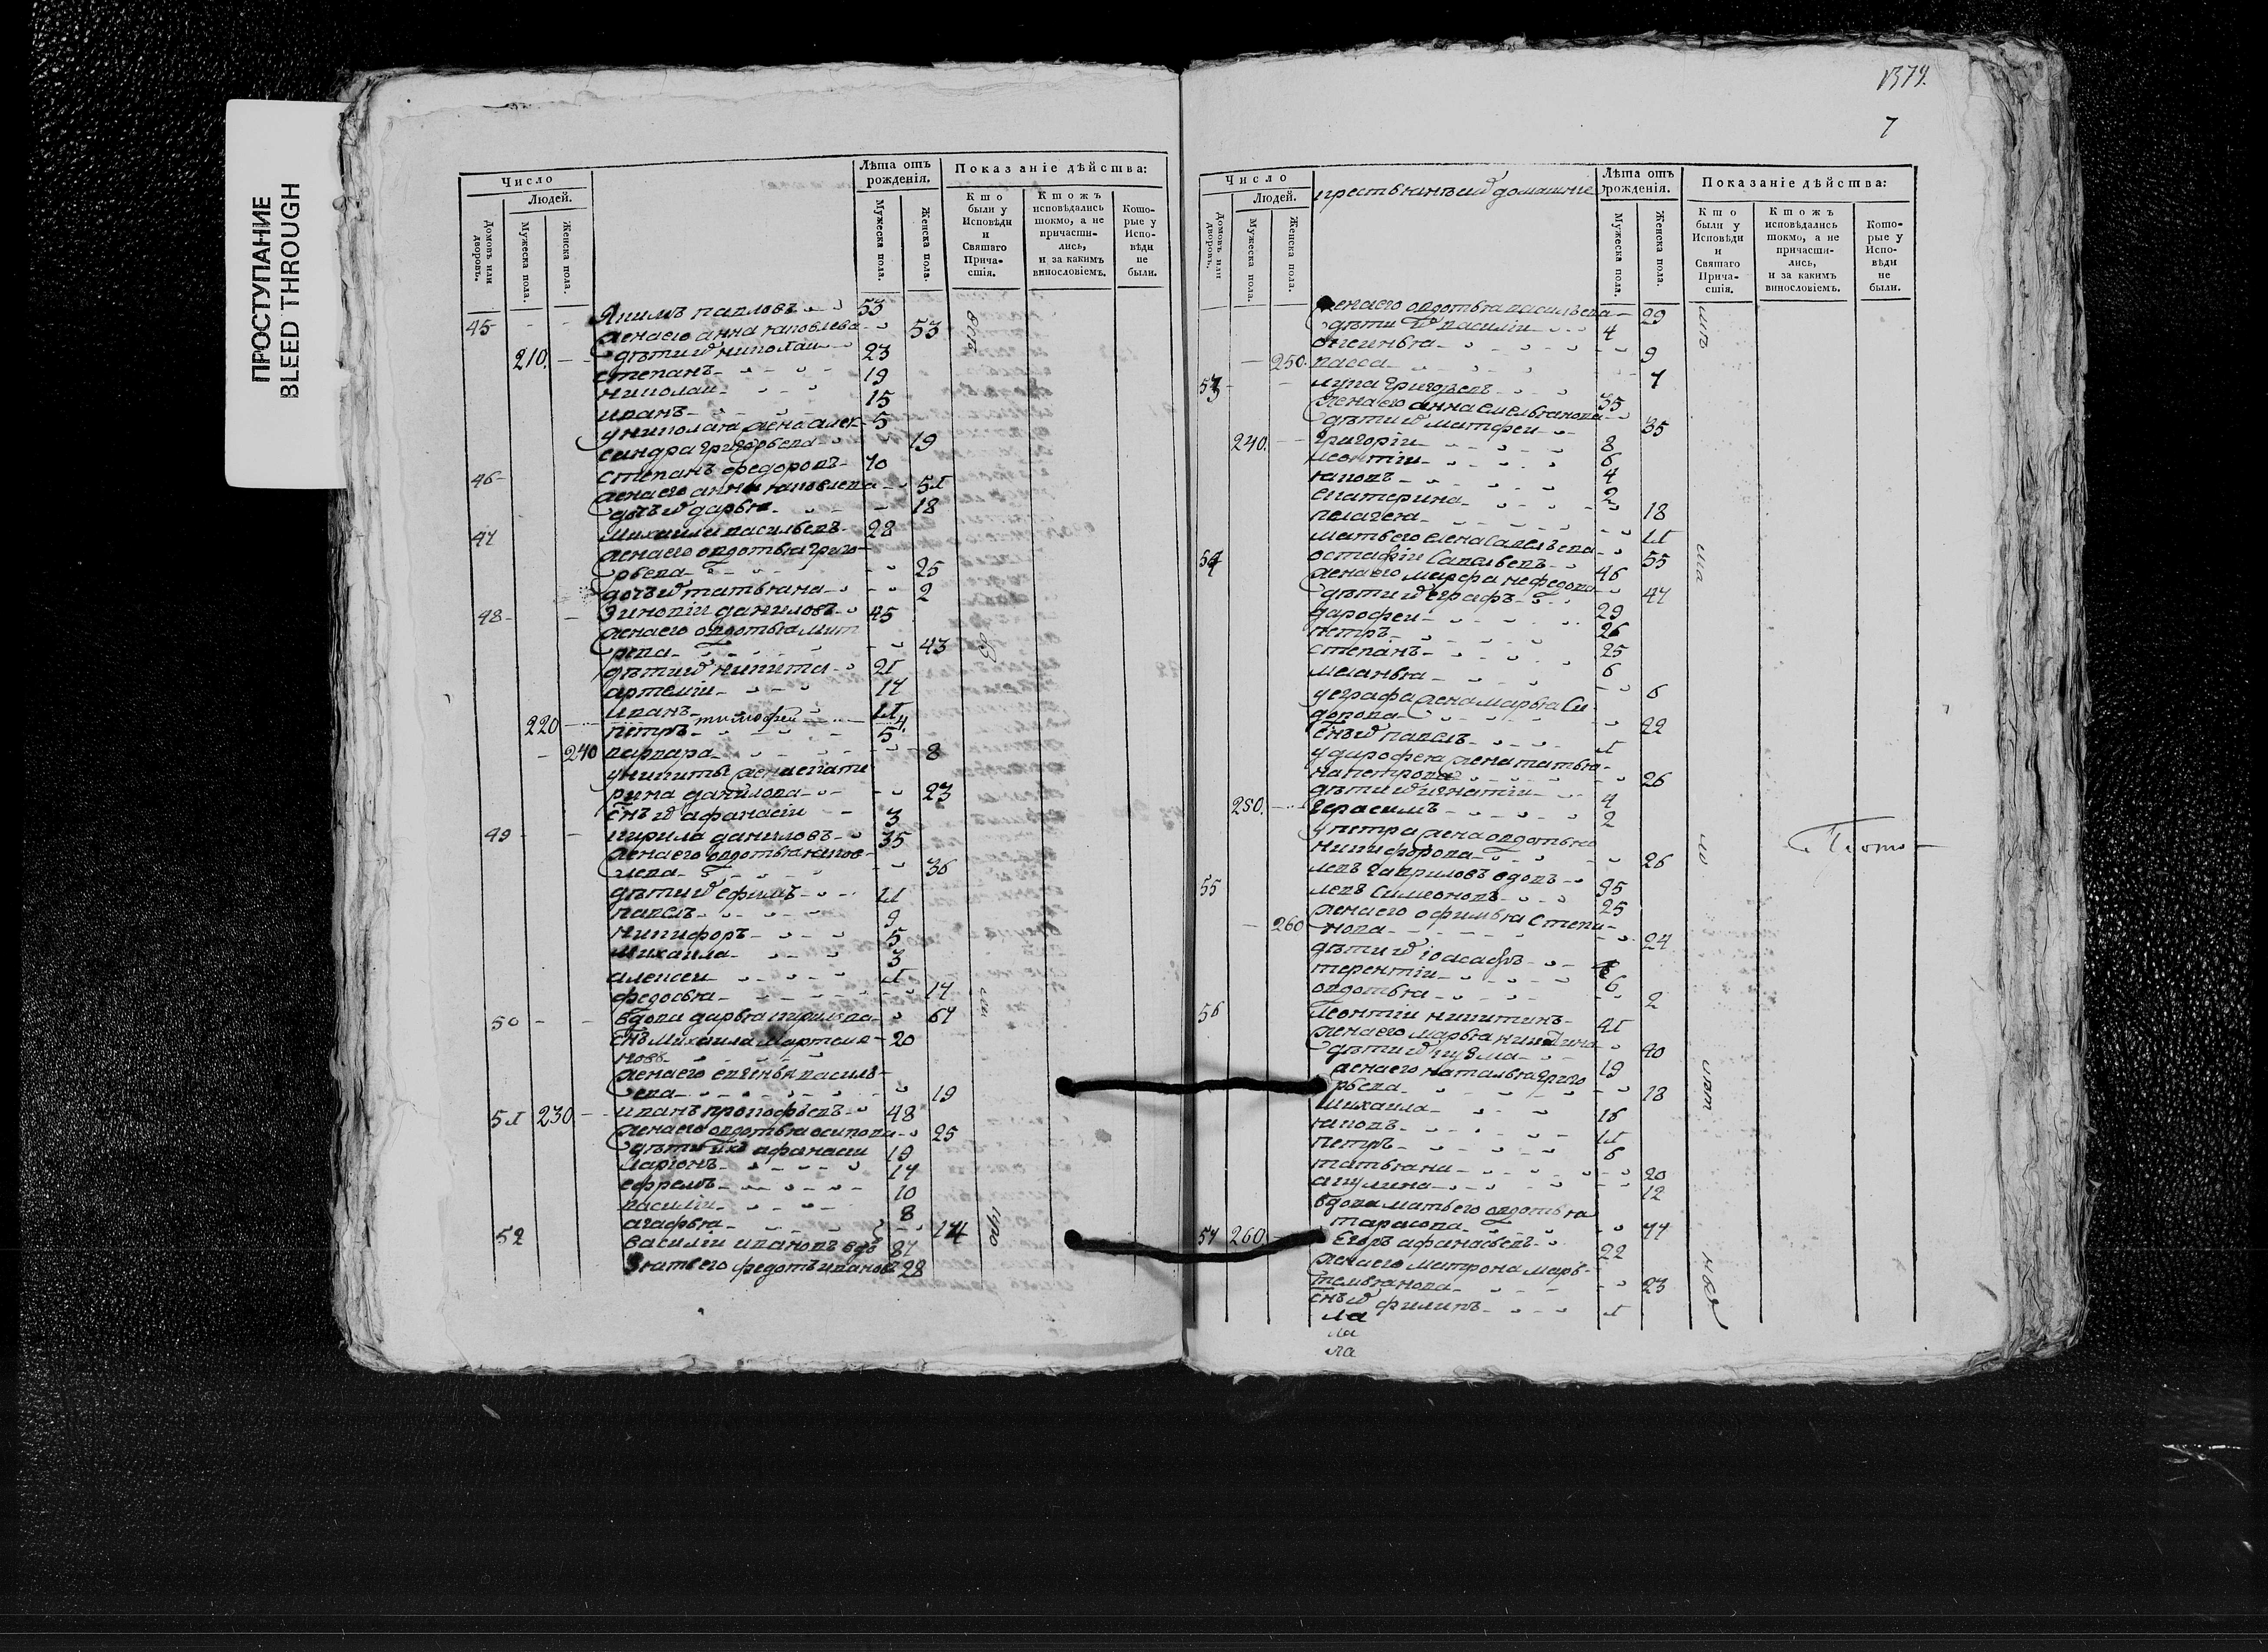 ПРОСТУПАНИЕ
BLEED THROUGH
Число
Людей.
Домовъ или дворовъ.
Мужеска пола.
Женска пола.
Лѣта отъ рожденія.
Мужеска пола.
Женска пола.
Показаніе дѣйства:
Кто были у Исповѣди и Святаго Прича-стія.
Ктожъ исповѣдались токмо, а не причасти-лись, и за какимъ винословіемъ.
Кото-рые у Испо-вѣди не были.
45 Якимъ павловъ 53
жена его анна яковлева 53
210. дѣти их николаи 23
степанъ 19
николаи 15
иванъ 5
у николая жена алек-
сандра григорьева 19
46 степанъ федоровъ 70
жена его анна яковлева 51
дочь их дарья 18
47 михаила васильевъ 28
жена его овдотья григо-
рьева 25
дочь их татьяна 2
48 Зиновіи даниловъ 45
жена его овдотья дмит
рева 43
дѣти их никита 21
артеміи 17
иванъ 11
220 тимофеи 4.
петръ 5
240 варвара 8
у никиты жена екате
рина данилова 23
снъ их афанасіи 3
49 кирила даниловъ 35
жена его овдотья яков-
лева 36
дѣти их ефимъ 11
павелъ 9
никифоръ 5
михаила 3
алексеи 1
федосья 17
50 вдова дарья кирилова 67
снъ михаила мартемя-
новъ 20
жена его евгенья василь-
ева 19
51 230 иванъ прокофьевъ 48
жена его овдотья осипова 25
дѣти их афанасіи 19
ларіонъ 17
ефремъ 10
василіи 8
агафья 14
52 василіи ивановъ вдъ 87
зять его федотъ ивановъ 28
1379.
7
Число
Людей.
Домовъ или дворовъ.
Мужеска пола.
Женска пола.
крестьянъ их домашніе
Лѣта отъ рожденія.
Мужеска пола.
Женска пола.
Показаніе дѣйства:
Кто были у Исповѣди и Святаго Прича-стія.
Ктожъ исповѣдались токмо, а не причасти-лись, и за какимъ винословіемъ.
Кото-рые у Испо-вѣди не были.
жена его овдотья васильева 29
дѣти их василіи 4
огеинья 9
250 васса 7
53 лука григорьевъ 35
жена его анна емельянова 35
дѣти их матфеи 8
240. григоріи 6
леонтіи 4
яковъ 2
екатерина 18
пелагея 11
мать его елена савельева 55
54 остафіи савельевъ 46
жена его марфа нефедова 47
дѣти их еграфъ 29
дарофеи 26
петръ 25
степанъ 6
меланья 6
у еграфа жена марья си-
дорова 22
снъ их павелъ 1
у дарофея жена татья-
на петрова 26
дѣти их игнатіи 4
250. герасимъ 2
у петра жена овдотья
никифорова 26
55 левъ гавриловъ вдовъ 95
левъ симеоновъ 25
жена его офимья степа-
260 нова 24
дѣти их іоасафъ
терентіи 6
овдотья 2
56 леонтіи никитинъ 41
жена его марья никитина 40
дѣти их кузма 19
жена его наталья григо
рьева 18
михаила 16
яковъ 11
петръ 6
татьяна 20
акулина 12
вдова мать его овдотья
тарасова 77
57 260. егоръ афанасьевъ 22
жена его матрона март-
темьянова 23
снъ их филипъ 1
ла
ла
ла